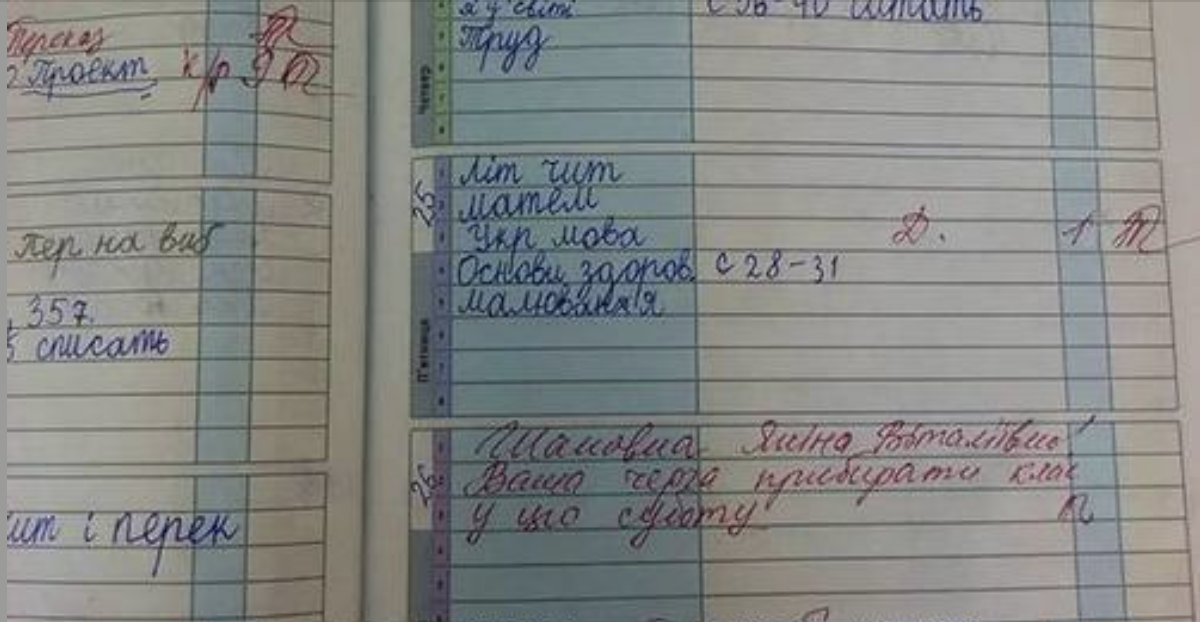 Переказ
Проєкт к/р 9
Пер на виб
357.
списать
чит і перек
я у світі с 36-40 читать
Труд
Четвер
25
Літ чит
матем
Укр мова Д. 1
Основи здоров. с 28-31
малювання
П'ятниця
26
Шановна Яніна Віталіївно!
Ваша черга прибирати клас
у цю суботу